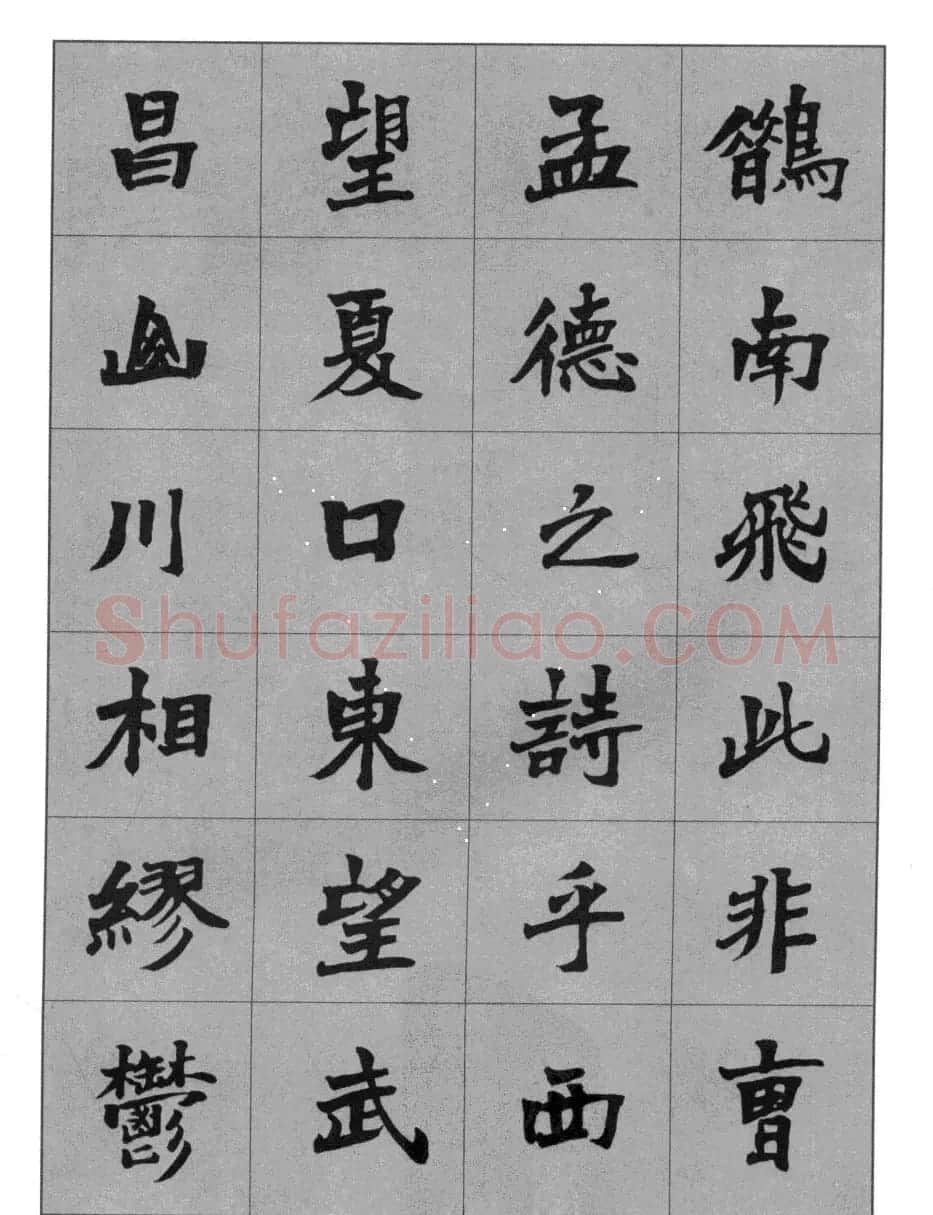 鵲南飛此非曹
孟德之詩乎西
望夏口東望武
昌山川相繆鬱
Shufaziliao.COM